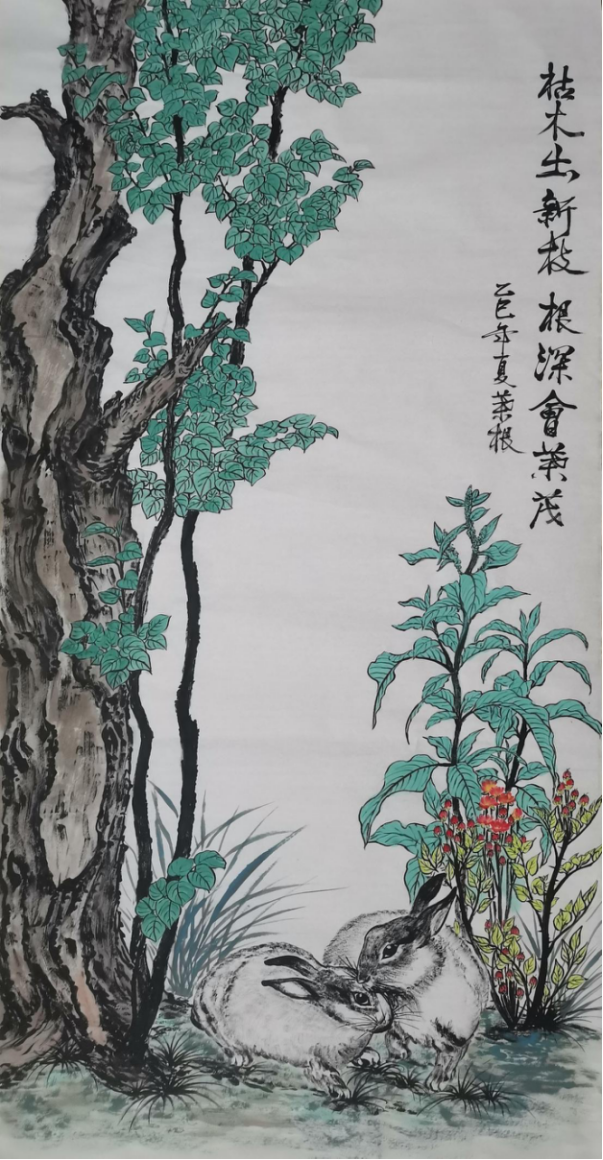 枯木出新枝 根深會葉茂
乙巳年夏 葉根